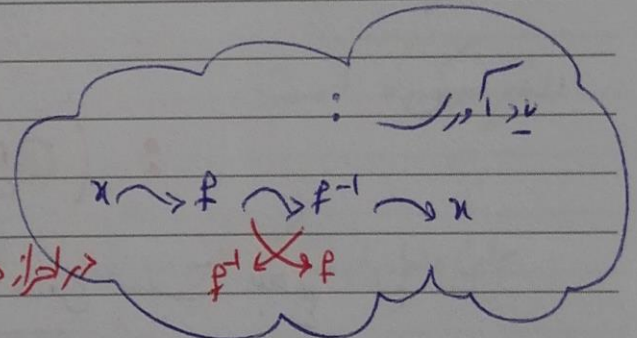 یادآوری :
x → f → f⁻¹ → x
f⁻¹ f